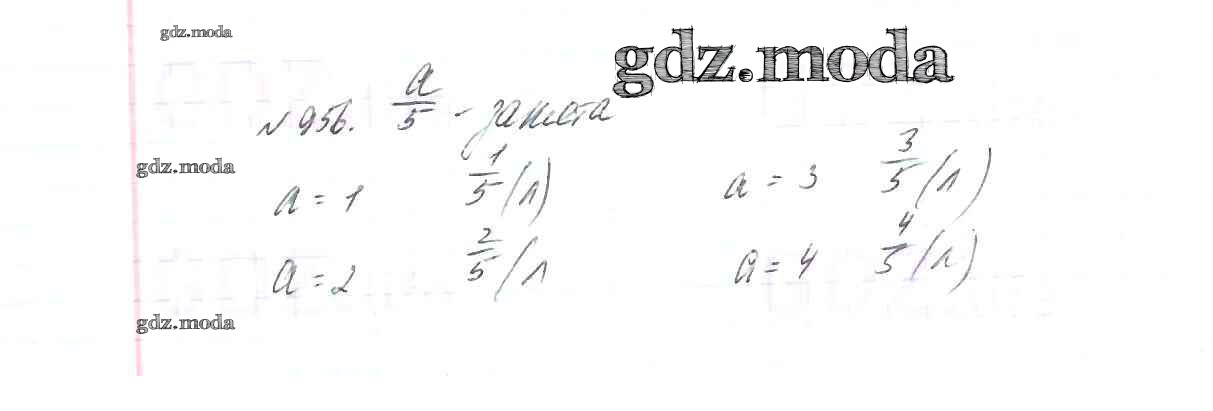 gdz.moda
gdz.moda
№ 956. a/5 - занята
gdz.moda
a = 1 1/5 (л) a = 3 3/5 (л)
a = 2 2/5 (л a = 4 4/5 (л)
gdz.moda